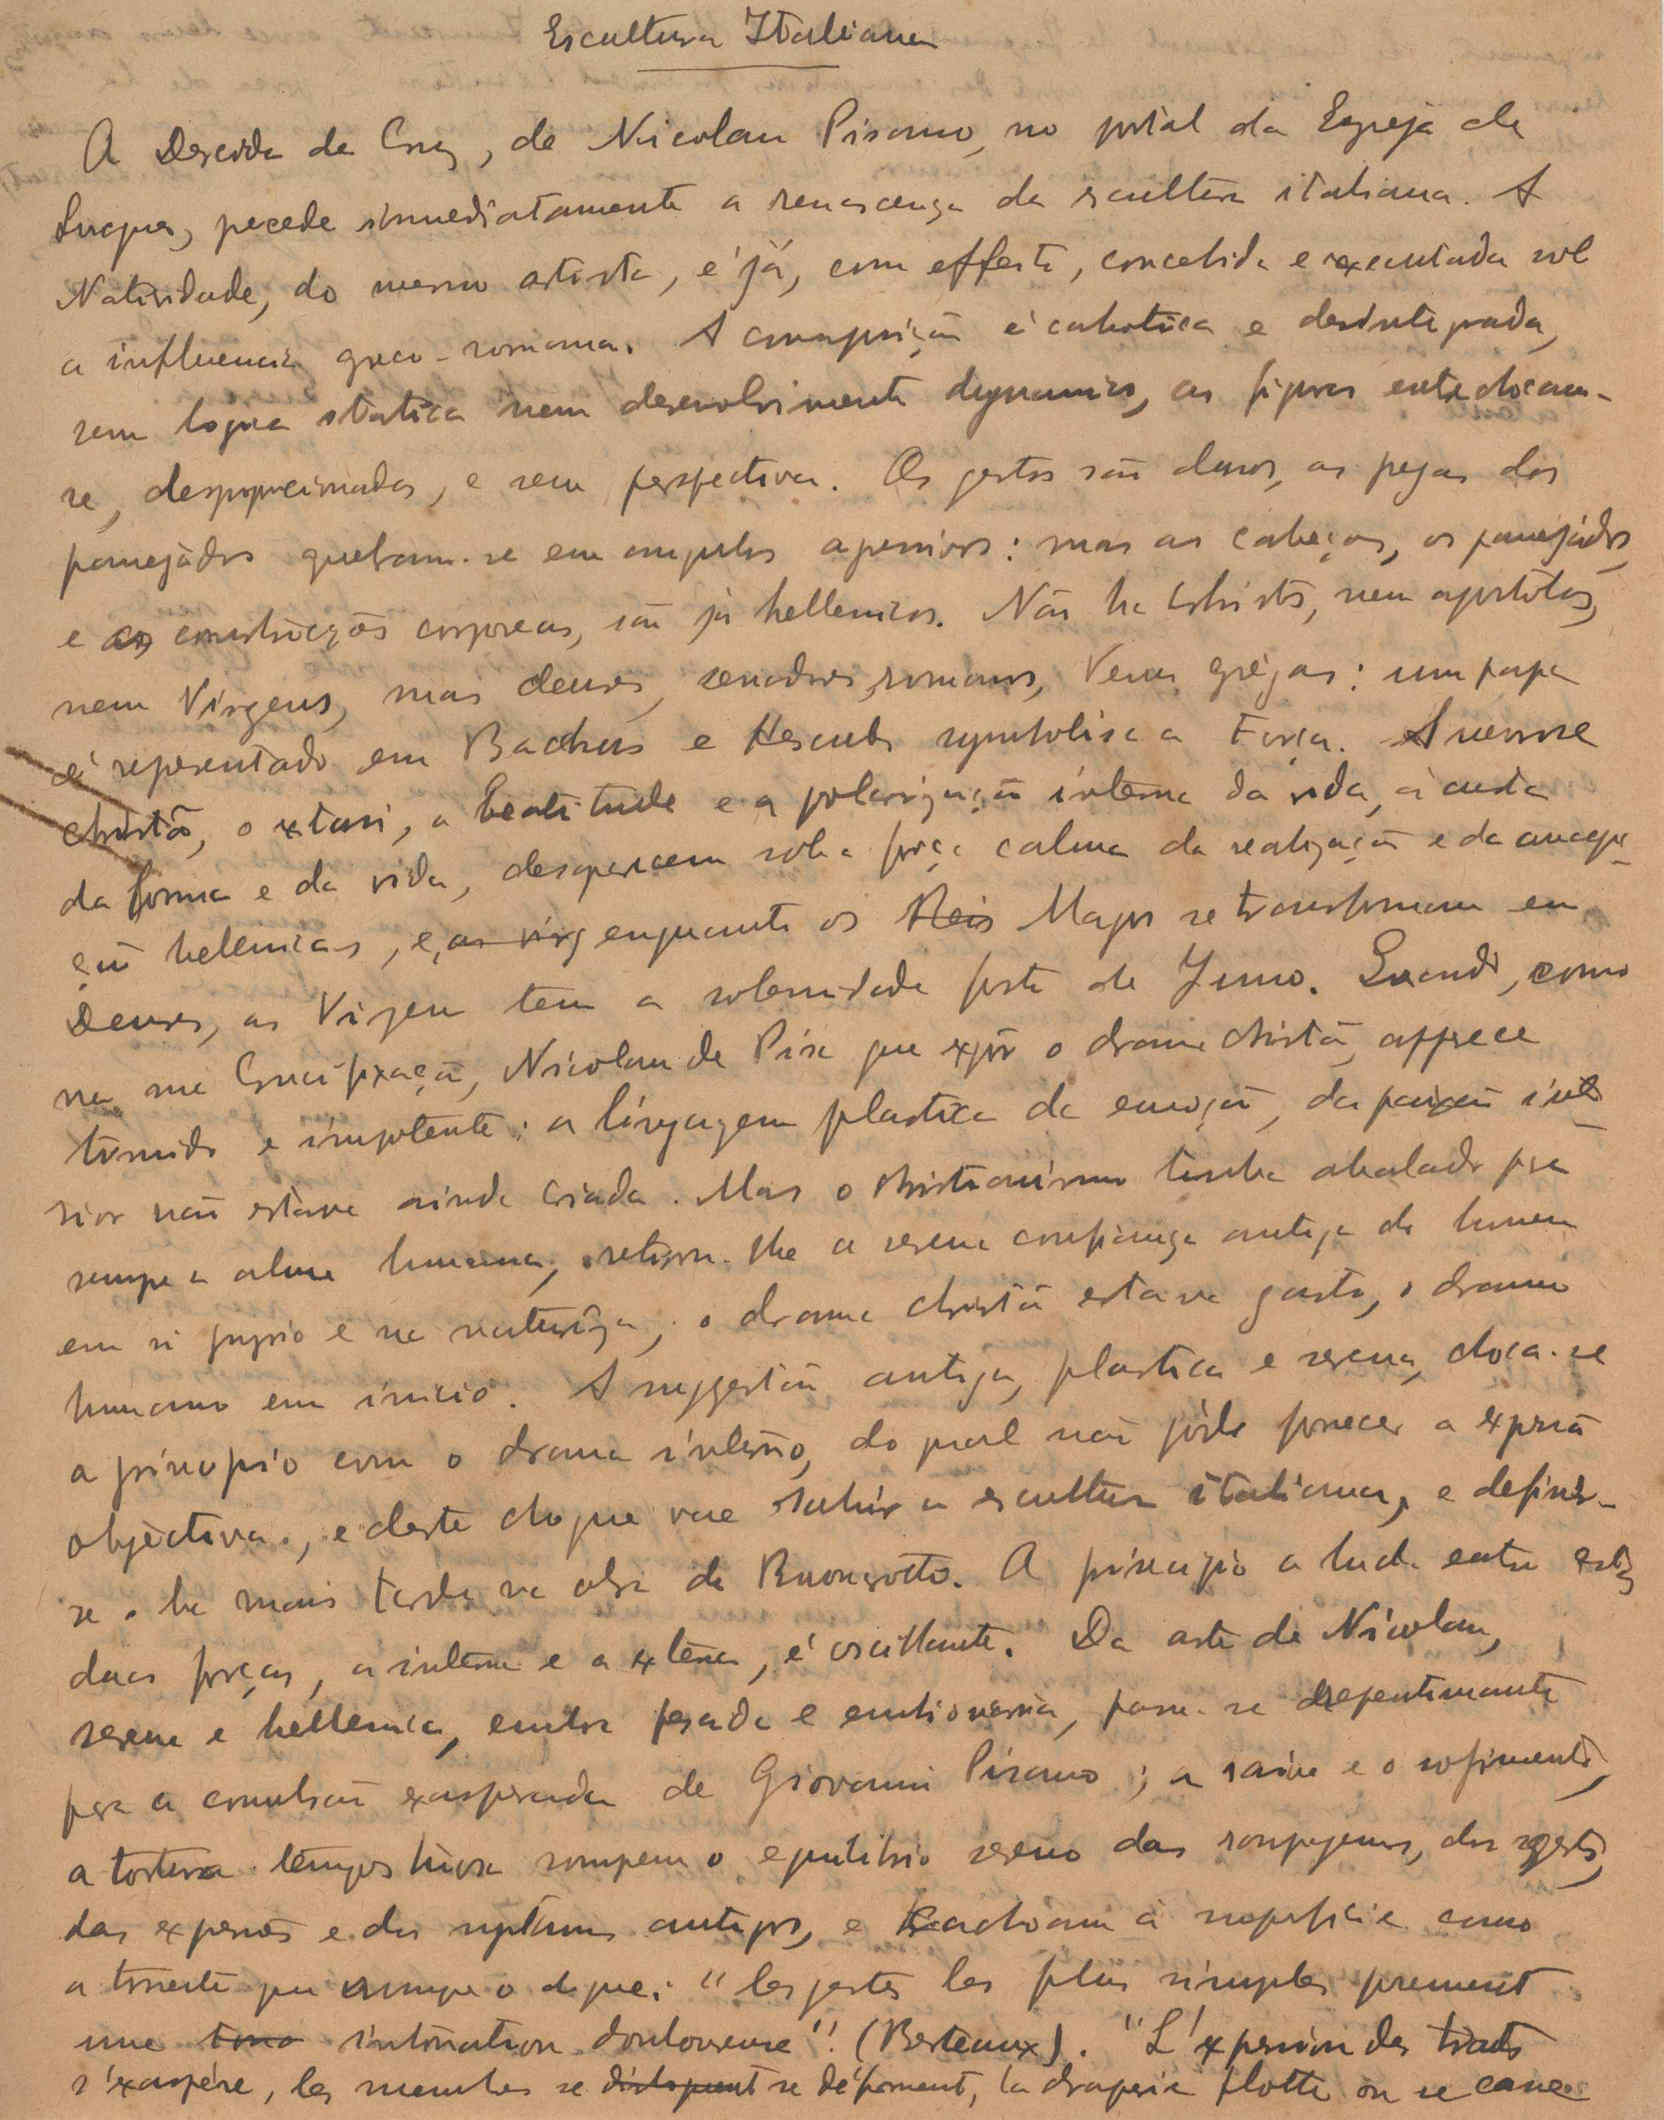 Escultura Italiana
A Descida da Cruz, de Nicolau Pisano, no portal da Egreja de
Lucques, precede immediatamente a renascença da escultura italiana. A
Natividade, do mesmo artista, é já, com effeito, concebida e executada sob
a influencia greco-romana. A composição é cahotica e desintegrada,
sem logica statica nem desenvolvimento dynamico, as figuras entrechocam-
se, desproporcionadas, e sem perspectiva. Os gestos são duros, as pregas dos
panejados quebram-se em angulos : mas as cabeças, os panejados,
e as construcções corporeas, são já hellenicas. Não ha Christos, nem apostolos,
nem Virgens, mas deuses, senadores romanos, Venus grêgas: um papa
é representado em Bacchus e Hercules symbolisa a Força. A
christã, o extasi, a beatitude e a polarização interna da vida, á custa
da forma e da vida, desaparecem sob a força calma da realização e da concep-
ção helenicas, e, as virg enquanto os Reis Magos se transformam em
Deuses, as Virgens tem a solemnidade forte de Juno. Quando, como
na sua Crucifixação, Nicolau de Pisa quer expôr o drama christã, apparece
timido e impotente: a linguagem plastica da emoção, da paixão inte-
rior não estava ainda criada. Mas o christianismo tinha abalado para
sempre a alma humana, retirou-lhe a serena confiança antiga do homem
em si proprio e na naturêza; o drama christã estava gasto, o drama
humano em inicio. A suggestão antiga, plastica e serena, choca-se
a principio com o drama interno, do qual não póde fornecer a expressão
objectiva, e deste choque vae sahir a escultura italiana, e definir-
se-ha mais tarde na obra de Buonarotto. A principio a lucta entre estas
duas forças, a interna e a externa, é oscillante. Da arte de Nicolau,
serena e hellenica, embora pesada e , passa-se repentinamente
para a convulsão exasperada de Giovanni Pisano; a raiva e o sofrimento,
a tortura tempestuosa rompem o equilibrio sereno das roupagens, dos gestos,
das expressões e dos antigos, e á superficie como
a torrente que rompe o dique: "les gestes les plus simples prennent
une tona intonation douloureuse"! (Berteaux). "L'expression des traits
s'exaspére, les membres se disloquent se déforment, la draperie flotte ou se casse